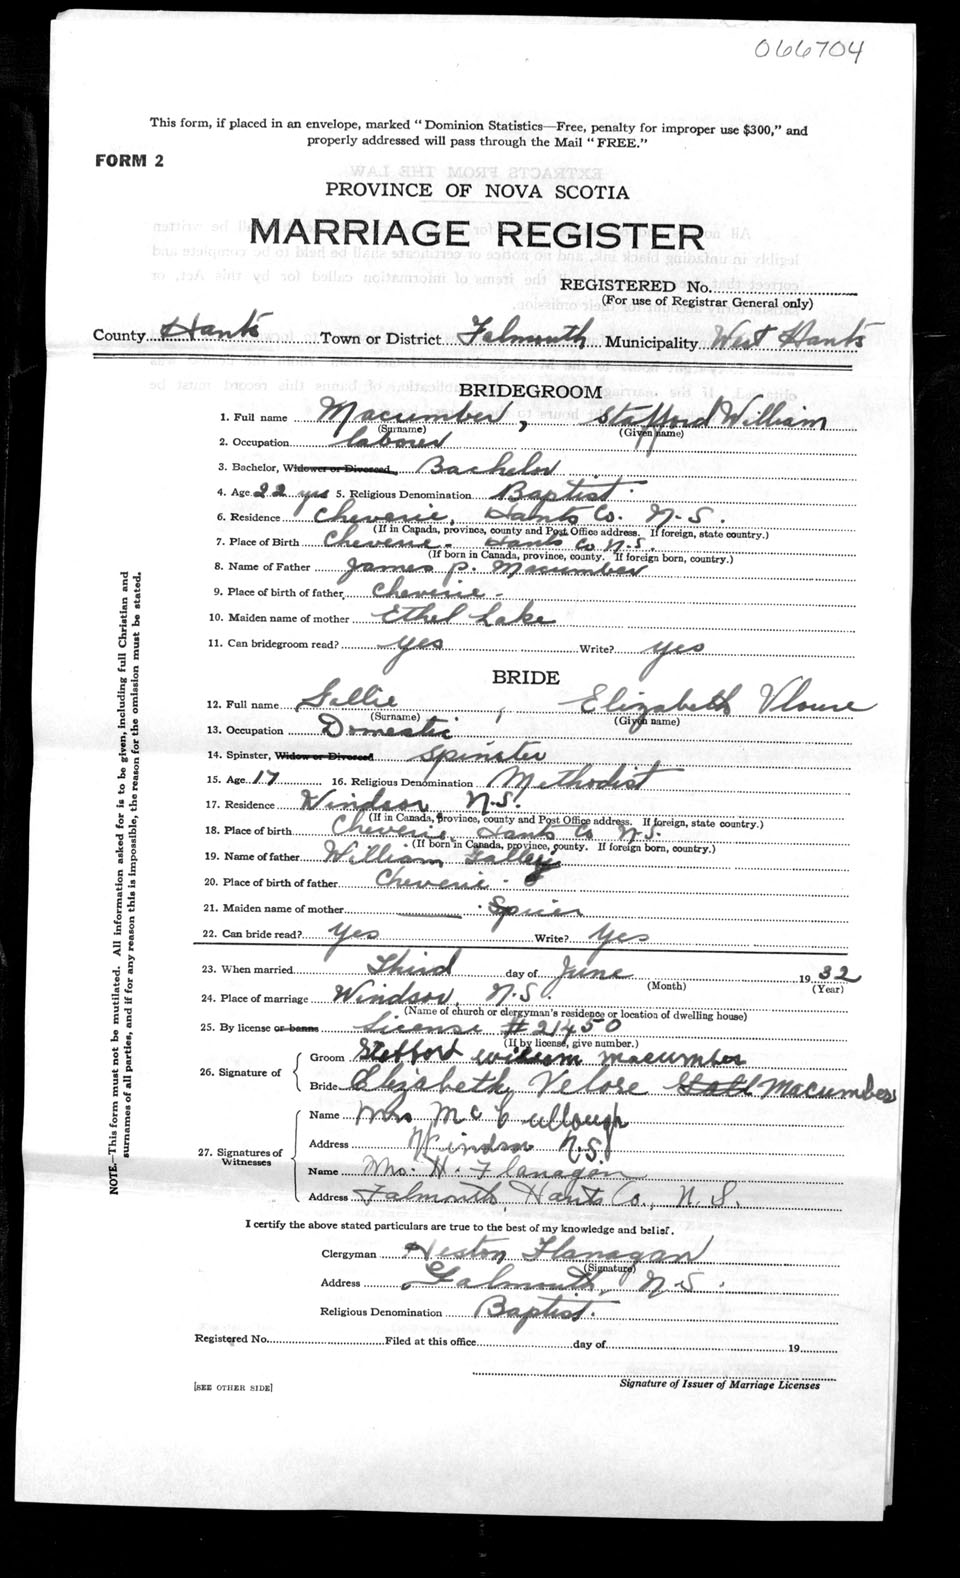 066704
This form, if placed in an envelope, marked "Dominion Statistics—Free, penalty for improper use $300," and
properly addressed will pass through the Mail "FREE."
FORM 2
PROVINCE OF NOVA SCOTIA
MARRIAGE REGISTER
REGISTERED No.
(For use of Registrar General only)
County Hants Town or District Falmouth Municipality West Hants
BRIDEGROOM
1. Full name Macumber, Stafford William
(Surname) (Given name)
2. Occupation laborer
3. Bachelor, Widower or Divorced Bachelor
4. Age 22 yrs 5. Religious Denomination Baptist
6. Residence Cheverie, Hants Co. N.S.
(If in Canada, province, county and Post Office address. If foreign, state country.)
7. Place of Birth Cheverie - Hants Co N.S.
(If born in Canada, province, county. If foreign born, country.)
8. Name of Father James P. Macumber
9. Place of birth of father Cheverie -
10. Maiden name of mother Ethel Lake
11. Can bridegroom read? yes Write? yes
BRIDE
12. Full name Gallie, Elizabeth Vloure
(Surname) (Given name)
13. Occupation Domestic
14. Spinster, Widow or Divorced Spinster
15. Age 17 16. Religious Denomination Methodist
17. Residence Windsor N.S.
(If in Canada, province, county and Post Office address. If foreign, state country.)
18. Place of birth Cheverie, Hants Co N.S.
(If born in Canada, province, county. If foreign born, country.)
19. Name of father William
20. Place of birth of father Cheverie -
21. Maiden name of mother Spicer
22. Can bride read? Yes Write? Yes
23. When married Third day of June 1932
(Month) (Year)
24. Place of marriage Windsor, N.S.
(Name of church or clergyman's residence or location of dwelling house)
25. By license or banns License # 21450
(If by license, give number.)
26. Signature of
Groom Stafford William Macumber
Bride Elizabeth Velore Macumber
27. Signatures of Witnesses
Name Mrs McCullough
Address Windsor N.S.
Name Mrs. H. Flanagan
Address Falmouth, Hants Co., N.S.
I certify the above stated particulars are true to the best of my knowledge and belief.
Clergyman Heston Flanagan
(Signature)
Address Falmouth, N.S.
Religious Denomination Baptist.
Registered No. Filed at this office day of 19
Signature of Issuer of Marriage Licenses
[SEE OTHER SIDE]
NOTE.—This form must not be mutilated. All information asked for is to be given, including full Christian and
surnames of all parties, and if for any reason this is impossible, the reason for the omission must be stated.